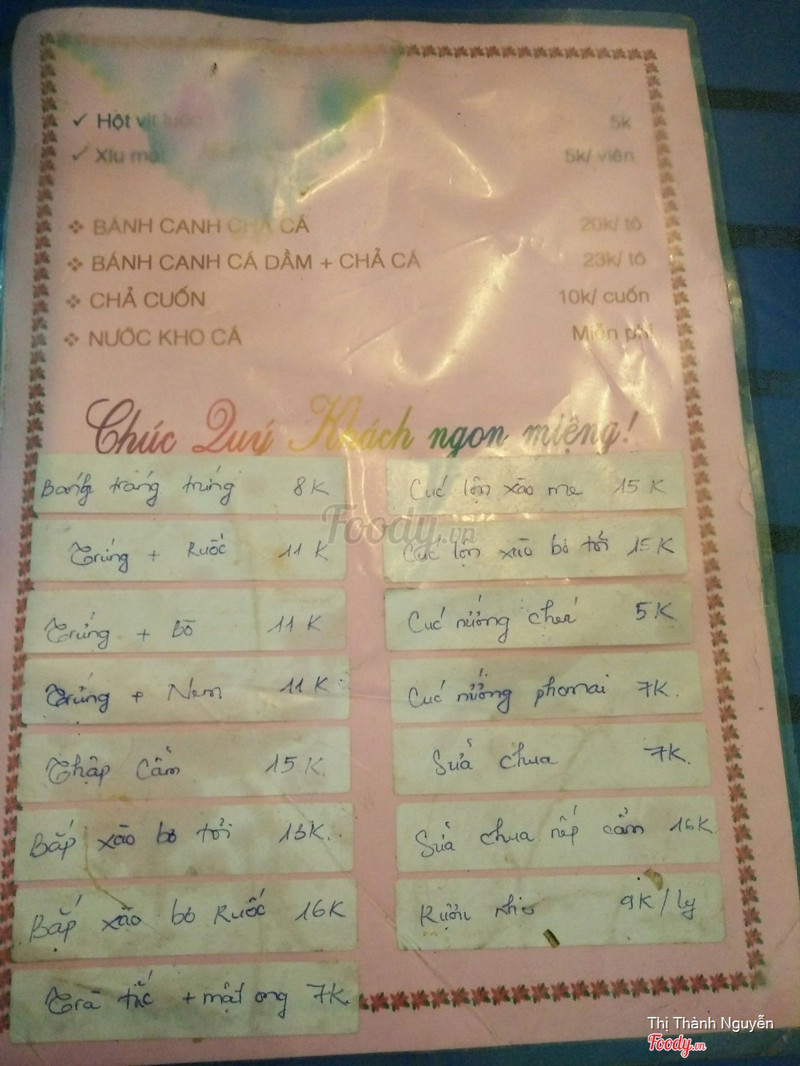 ✓ Hột vịt 5k
✓ Xíu mại 5k/ viên
❖ BÁNH CANH CHẢ CÁ 20k/ tô
❖ BÁNH CANH CÁ DẦM + CHẢ CÁ 23k/ tô
❖ CHẢ CUỐN 10k/ cuốn
❖ NƯỚC KHO CÁ Miễn phí
Chúc Quý Khách ngon miệng!
Bánh tráng trứng 8K
Trứng + Ruốc 11K
Trứng + bò 11K
Trứng + Nem 11K
Thập Cẩm 15K
Bắp xào bơ tỏi 13K
Bắp xào bơ Ruốc 16K
Trà tắc + mật ong 7K
Cút lộn xào me 15K
Cút lộn xào bơ tỏi 15K
Cút nướng chén 5K
Cút nướng phomai 7K
Sữa chua 7K
Sữa chua nếp cẩm 16K
Rượu nho 9K/ly
Foody.vn
Thị Thành Nguyễn
Foody.vn